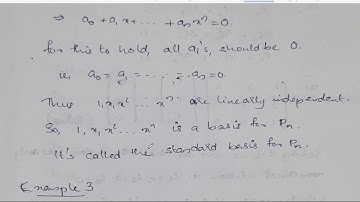 ⇒ a₀ + a₁x + ... + aₙxⁿ = 0.
for this to hold, all aᵢ's, should be 0.
i.e. a₀ = a₁ = - ... = aₙ = 0
Thus 1, x, x² ... xⁿ are linearly independent.
So, 1, x, x² ... xⁿ is a basis for Pₙ.
It's called the standard basis for Pₙ.
Example 3